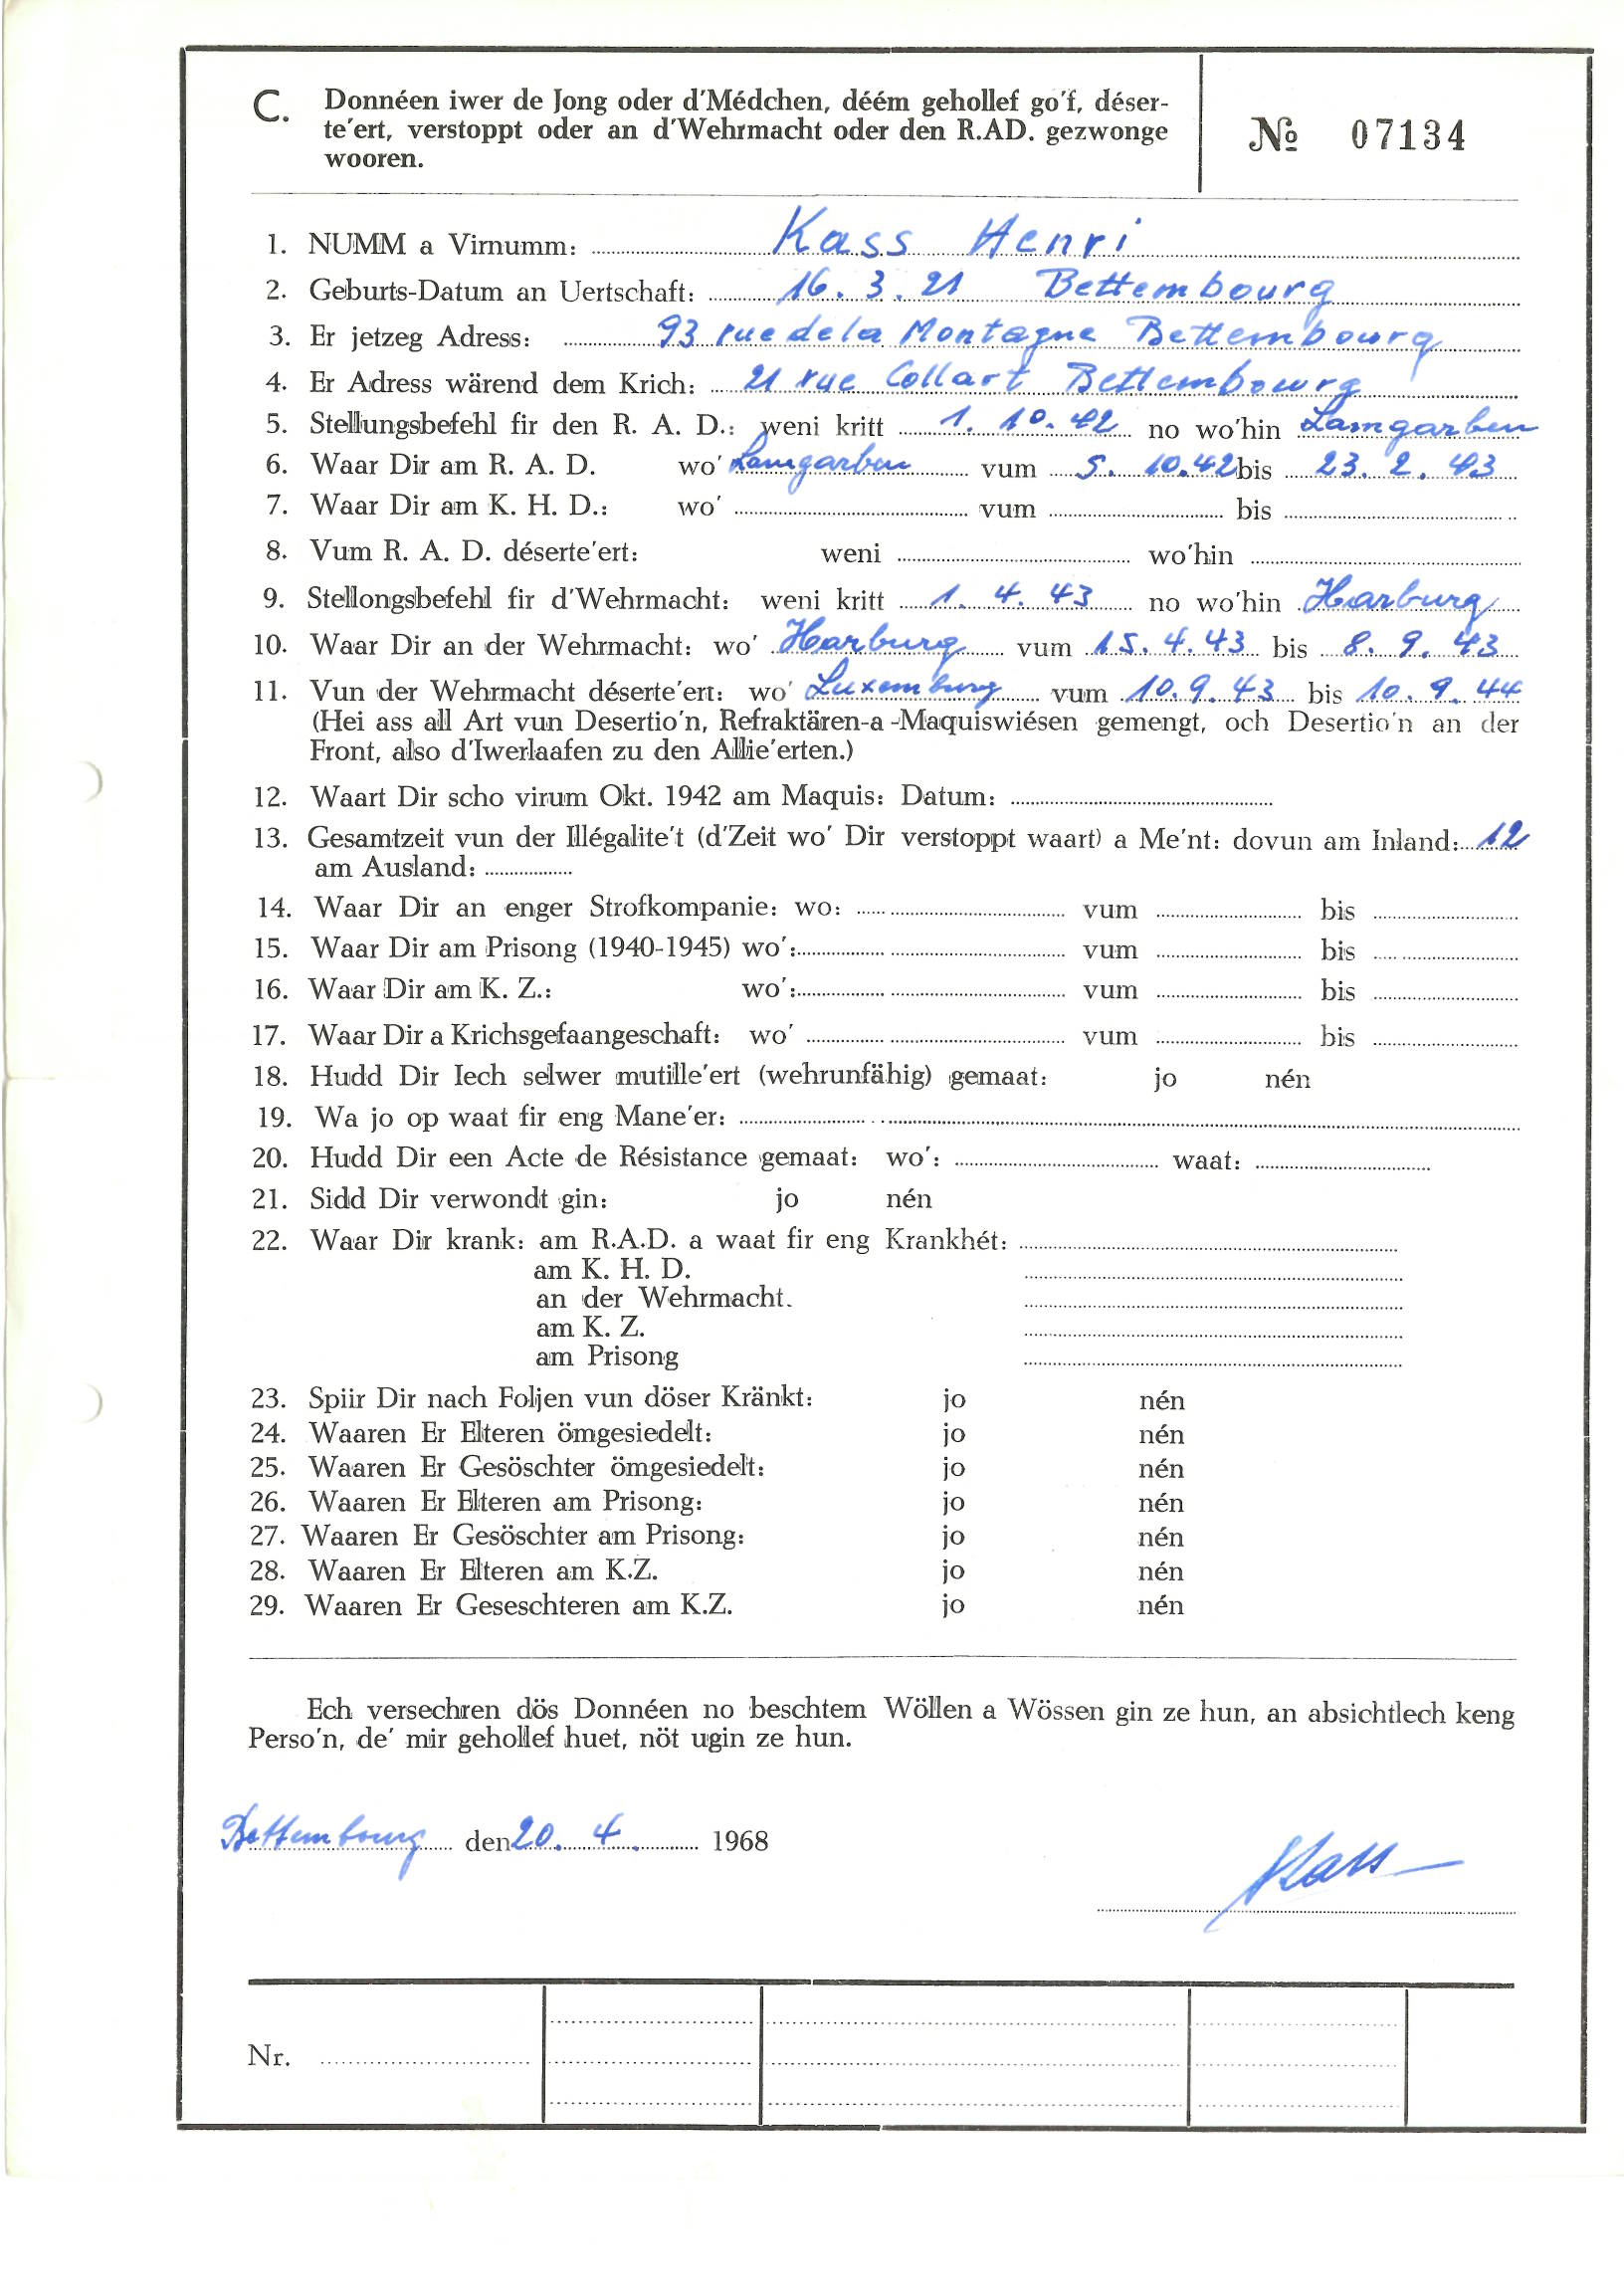 C. Donnéen iwer de Jong oder d'Médchen, déém gehollef go'f, déser-
te'ert, verstoppt oder an d'Wehrmacht oder den R.AD. gezwonge
wooren.
№ 07134
1. NUMM a Virnumm: Kass Henri
2. Geburts-Datum an Uertschaft: 16. 3. 21 Bettembourg
3. Er jetzeg Adress: 93 rue de la Montagne Bettembourg
4. Er Adress wärend dem Krich: 21 rue Collart Bettembourg
5. Stellungsbefehl fir den R. A. D.: weni kritt 1. 10. 42 no wo'hin Lamgarben
6. Waar Dir am R. A. D. wo' Lamgarben vum 5. 10. 42 bis 23. 2. 43
7. Waar Dir am K. H. D.: wo' vum bis
8. Vum R. A. D. déserte'ert: weni wo'hin
9. Stellongsbefehl fir d'Wehrmacht: weni kritt 1. 4. 43 no wo'hin Harburg
10. Waar Dir an der Wehrmacht: wo' Harburg vum 15. 4. 43 bis 8. 9. 43
11. Vun der Wehrmacht déserte'ert: wo' Luxemburg vum 10. 9. 43 bis 10. 9. 44
(Hei ass all Art vun Desertio'n, Refraktären-a-Maquiswiésen gemengt, och Desertio'n an der
Front, also d'Iwerlaafen zu den Allie'erten.)
12. Waart Dir scho virum Okt. 1942 am Maquis: Datum:
13. Gesamtzeit vun der Illégalite't (d'Zeit wo' Dir verstoppt waart) a Me'nt: dovun am Inland: 12
am Ausland:
14. Waar Dir an enger Strofkompanie: wo: vum bis
15. Waar Dir am Prisong (1940-1945) wo': vum bis
16. Waar Dir am K. Z.: wo': vum bis
17. Waar Dir a Krichsgefaangeschaft: wo' vum bis
18. Hudd Dir Iech selwer mutille'ert (wehrunfähig) gemaat: jo nén
19. Wa jo op waat fir eng Mane'er:
20. Hudd Dir een Acte de Résistance gemaat: wo': waat:
21. Sidd Dir verwondt gin: jo nén
22. Waar Dir krank: am R.A.D. a waat fir eng Krankhét:
am K. H. D.
an der Wehrmacht.
am K. Z.
am Prisong
23. Spiir Dir nach Foljen vun döser Kränkt: jo nén
24. Waaren Er Elteren ömgesiedelt: jo nén
25. Waaren Er Gesöschter ömgesiedelt: jo nén
26. Waaren Er Elteren am Prisong: jo nén
27. Waaren Er Gesöschter am Prisong: jo nén
28. Waaren Er Elteren am K.Z. jo nén
29. Waaren Er Geseschteren am K.Z. jo nén
Ech versechren dös Donnéen no beschtem Wöllen a Wössen gin ze hun, an absichtlech keng
Perso'n, de' mir gehollef huet, nöt ugin ze hun.
Bettembourg den 20. 4. 1968
Kass
Nr.